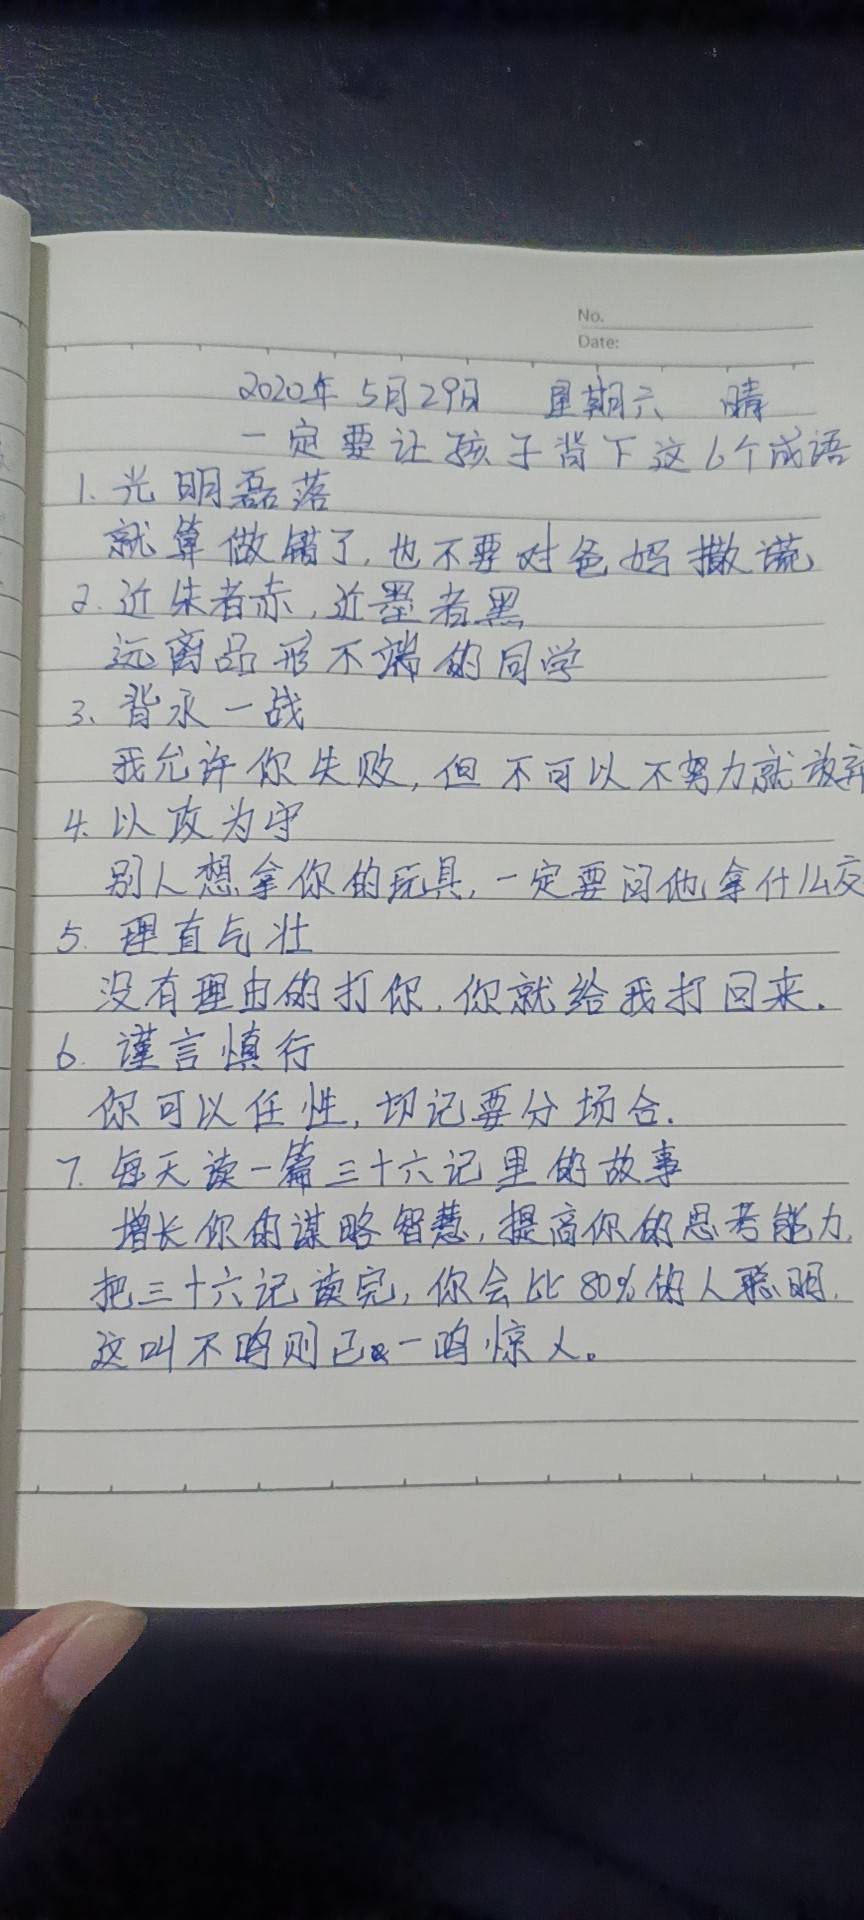 No.
Date:
2020年 5月29日 星期六 晴
一定要让孩子背下这6个成语
1. 光明磊落
就算做错了,也不要对爸妈撒谎
2. 近朱者赤,近墨者黑
远离品形不端的同学
3、背水一战
我允许你失败,但不可以不努力就放弃
4. 以攻为守
别人想拿你的玩具,一定要问他拿什么交
5. 理直气壮
没有理由的打你,你就给我打回来.
6. 谨言慎行
你可以任性,切记要分场合.
7. 每天读一篇三十六记里的故事
增长你的谋略智慧,提高你的思考能力,
把三十六记读完,你会比80%的人聪明,
这叫不鸣则已一鸣惊人。